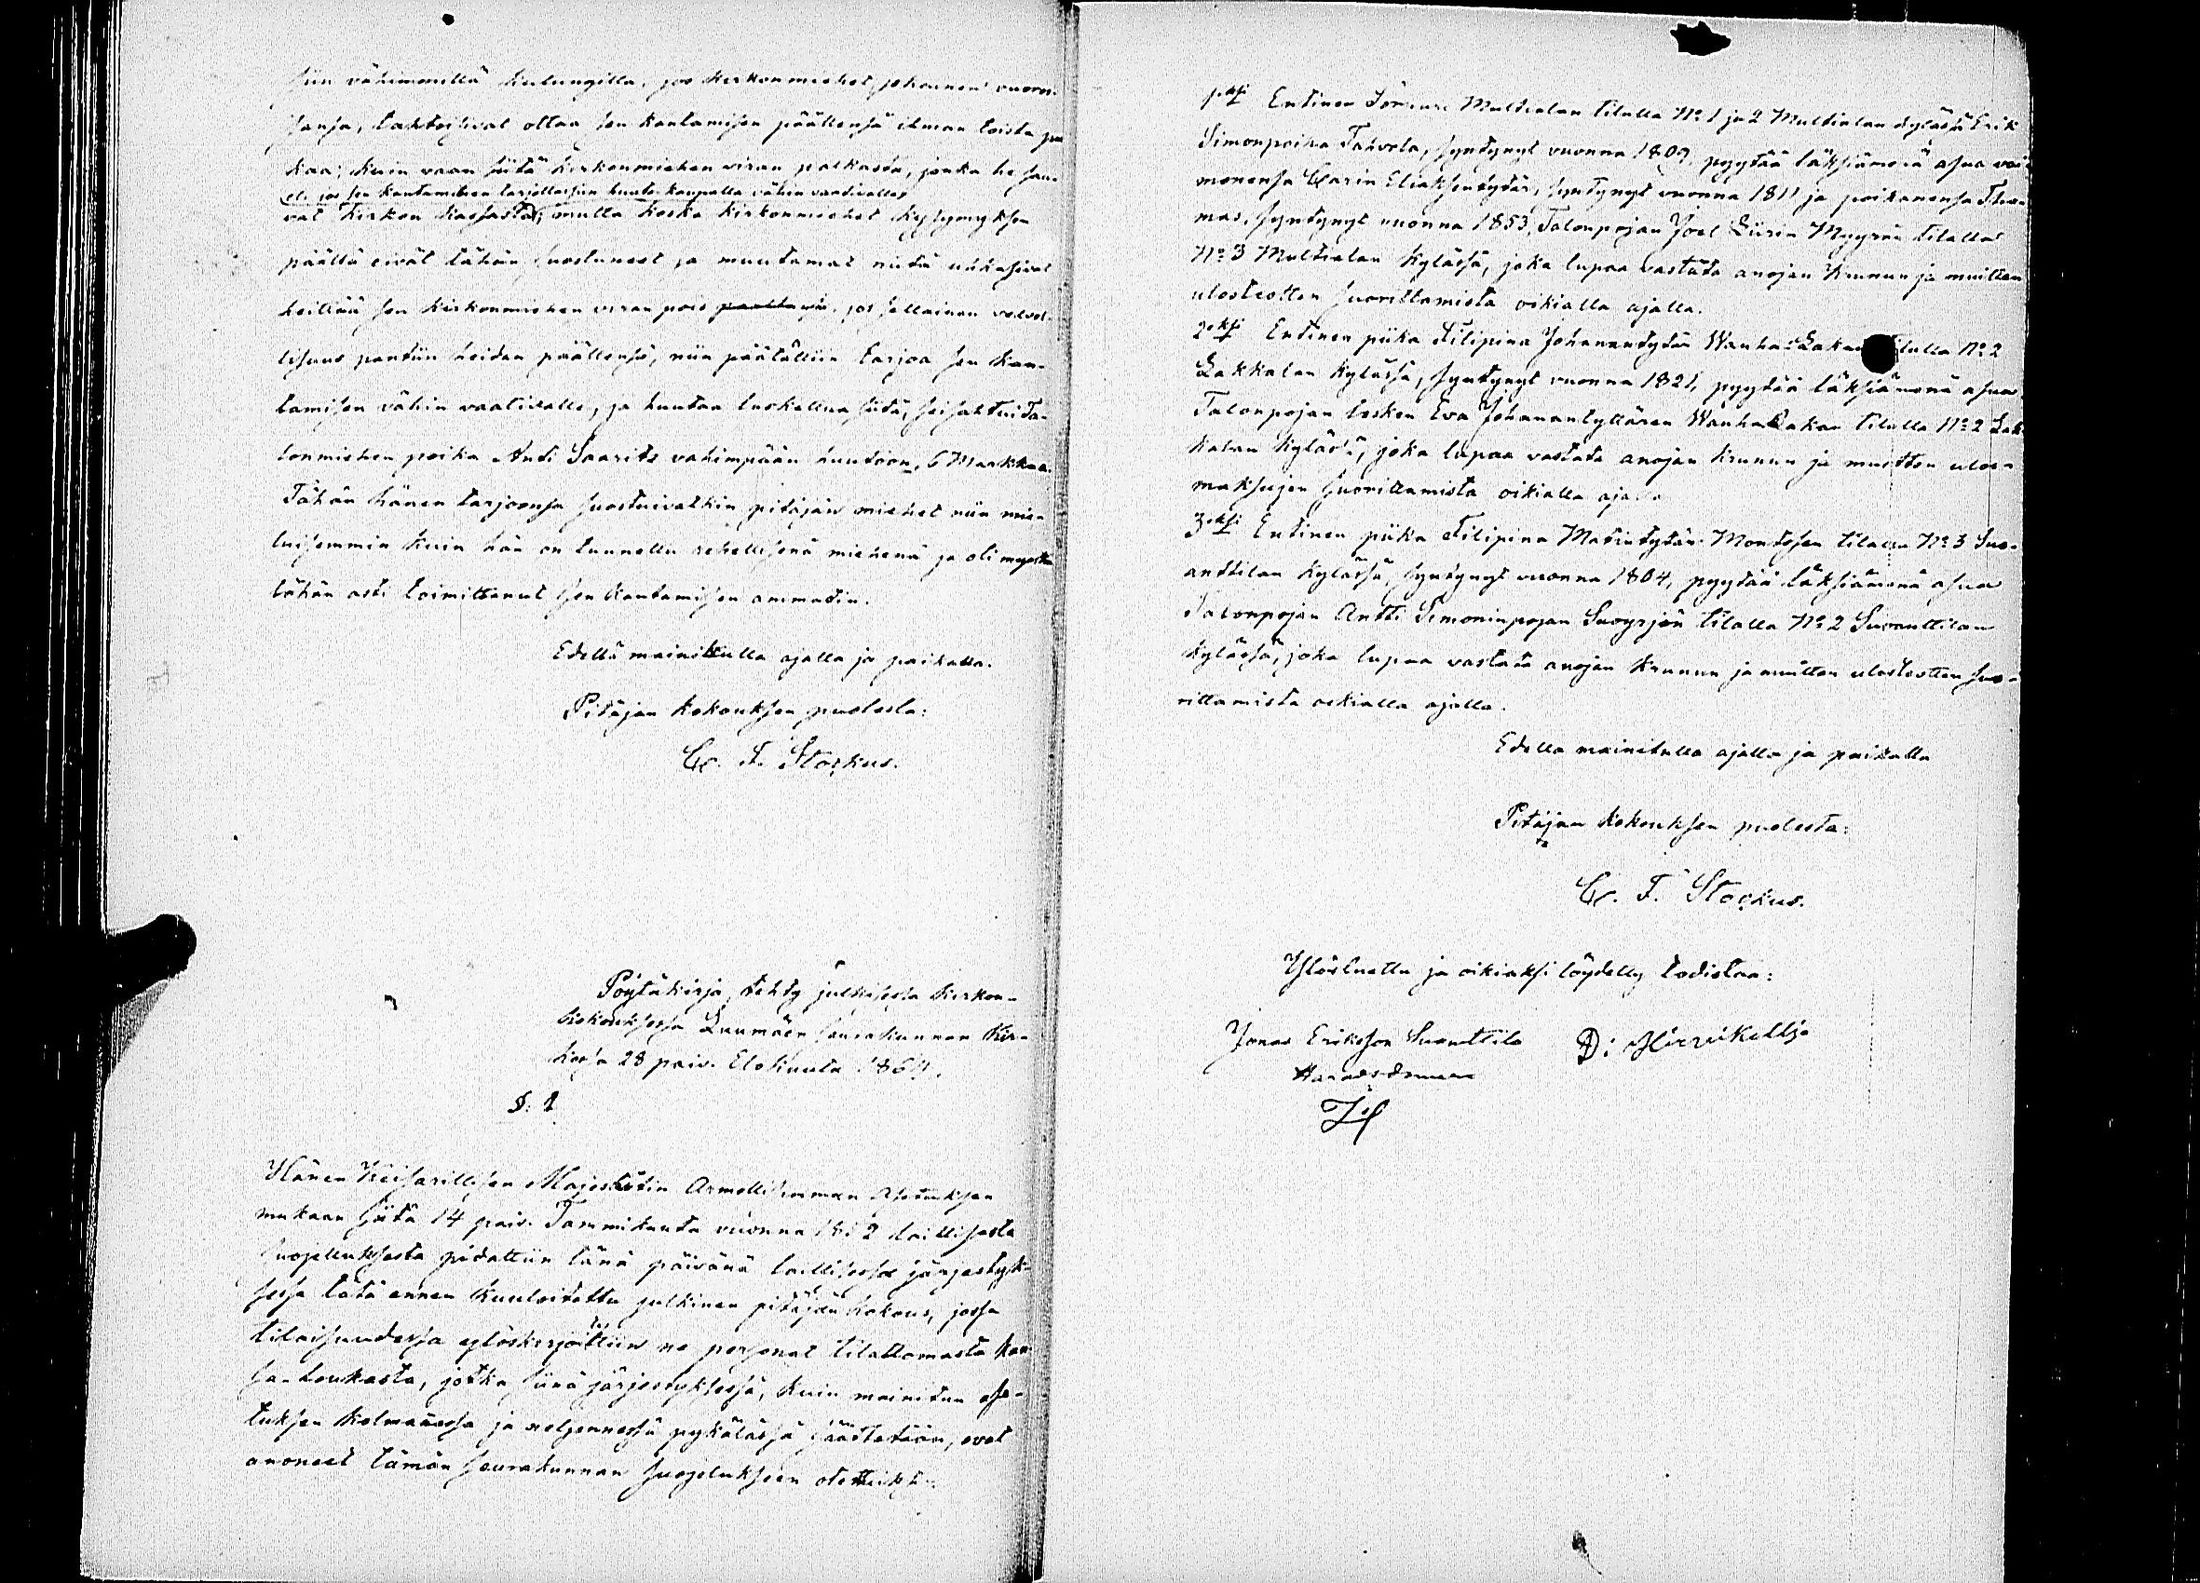 siin vähimmällä kulungilla, jos kirkonmiehet, johonnen vuoros-
sansa, tahtoisivat ottaa sen kantamisen päällensä ilman toista pal
kaa; kuin vaan siitä kirkonmiehen viran palkasta, jonka he saa-
eli jos sen kantaminen tarjottaisiin huuto-kaupalla vähin vaativalles
vat kirkon kassasta; mutta koska kirkonmiehet kysymyksen
päällä eivät tähän suostuneet ja muutamat niistä uhkasivat
heittää sen kirkonmiehen viran pois, jos sellainen velvol-
lisuus pantiin heidan päällensä, niin päätättiin tarjoa sen kan-
tamisen vähin vaativalle, ja huutoa luskellua siitä, seisahtui Ta-
lonmiehen poika Anti Saarits vahimpään huutoon, 6 Markkaa.
Tähän hänen tarjoonsa suostuivatkin pitäjän miehet niin mie-
luisemmin kuin hän on tunnettu rehellisenä miehenä ja oli myöskin
tähän asti toimittanut sen kantamisen ammatin.
Edellä mainitulla ajalla ja paikalla.
Pitäjan kokouksen puolesta:
C. F. Stockus.
Pöytäkirja, tehty julkisessa kirkon-
kokouksessa Luumäen seurakunnan Kir-
kossa 28 paiv. Elokuuta 1864.
§. 1
Hänen Keisarillisen Majestetin Armollisimman Asetuksen
mukaan siitä 14 paiv. Tammikuuta vuonna 1852 laillisesta
suojelluksesta pidattiin tänä päivänä laillisessa järjestyk-
sessa tätä ennen kuuloitettu julkinen pitäjän kokous, jossa
tilaisuudessa ylöskirjoitettiin ne personat tilattomasta kan-
sa-loukasta, jotka siinä järjestyksessä, kuin mainitun ase-
tuksen kolmanessa ja neljennessä pykälässä säätetään, ovat
anoneet tämän seurakunnan suojelukseen otettuiksi:
1:ksi Entinen Multialan tilalla No 1 ja 2 Multialan kylässä Erik
Simonpoika Tahvola, syntynyt vuonna 1809, pyytää läksiämenä asua vai-
monensa Carin Eliaksentytär, syntynyt vuonna 1811 ja poikanensa Tho-
mas, syntynyt vuonna 1853, Talonpojan Joel Siirin Myyrän tilalla
No 3 Multialan kylässä, joka lupaa vastata anojan Krunun ja muitten
ulosteotten suorittamista oikialla ajalla.
2:ksi Entinen piika Filipina Johanantytär Wanha-Lakan tilalla No 2
Lakkalan kylässä, syntynyt vuonna 1821, pyytää läksiämenä asua
Talonpojan lesken Eva Johanantyttären Wanha Lakan tilalla No 2 Lak-
kalan kylässä, joka lupaa vastata anojan krunun ja muitten ulos-
maksujen suorittamista oikialla ajalla
3:ksi Entinen piika Filipina Matintytär Montosen tilalla No 3 Suo-
anttilan kylässä, syntynyt vuonna 1804, pyytää läksiämenä asua
Talonpojan Antti Simoninpojan Suoyrjön tilalla No 2 Suoanttilan
kylässä, joka lupaa vastata anojan krunun ja muitten ulosteotten suo-
rittamista oikialla ajalla.
Edella mainitulla ajalla ja paikalla
Pitäjan kokouksen puolesta:
C. F. Stockus.
Ylösluettu ja oikiaksi löydetty todistaa:
Jonas Eriksson Suanttila D: Hirvikallio